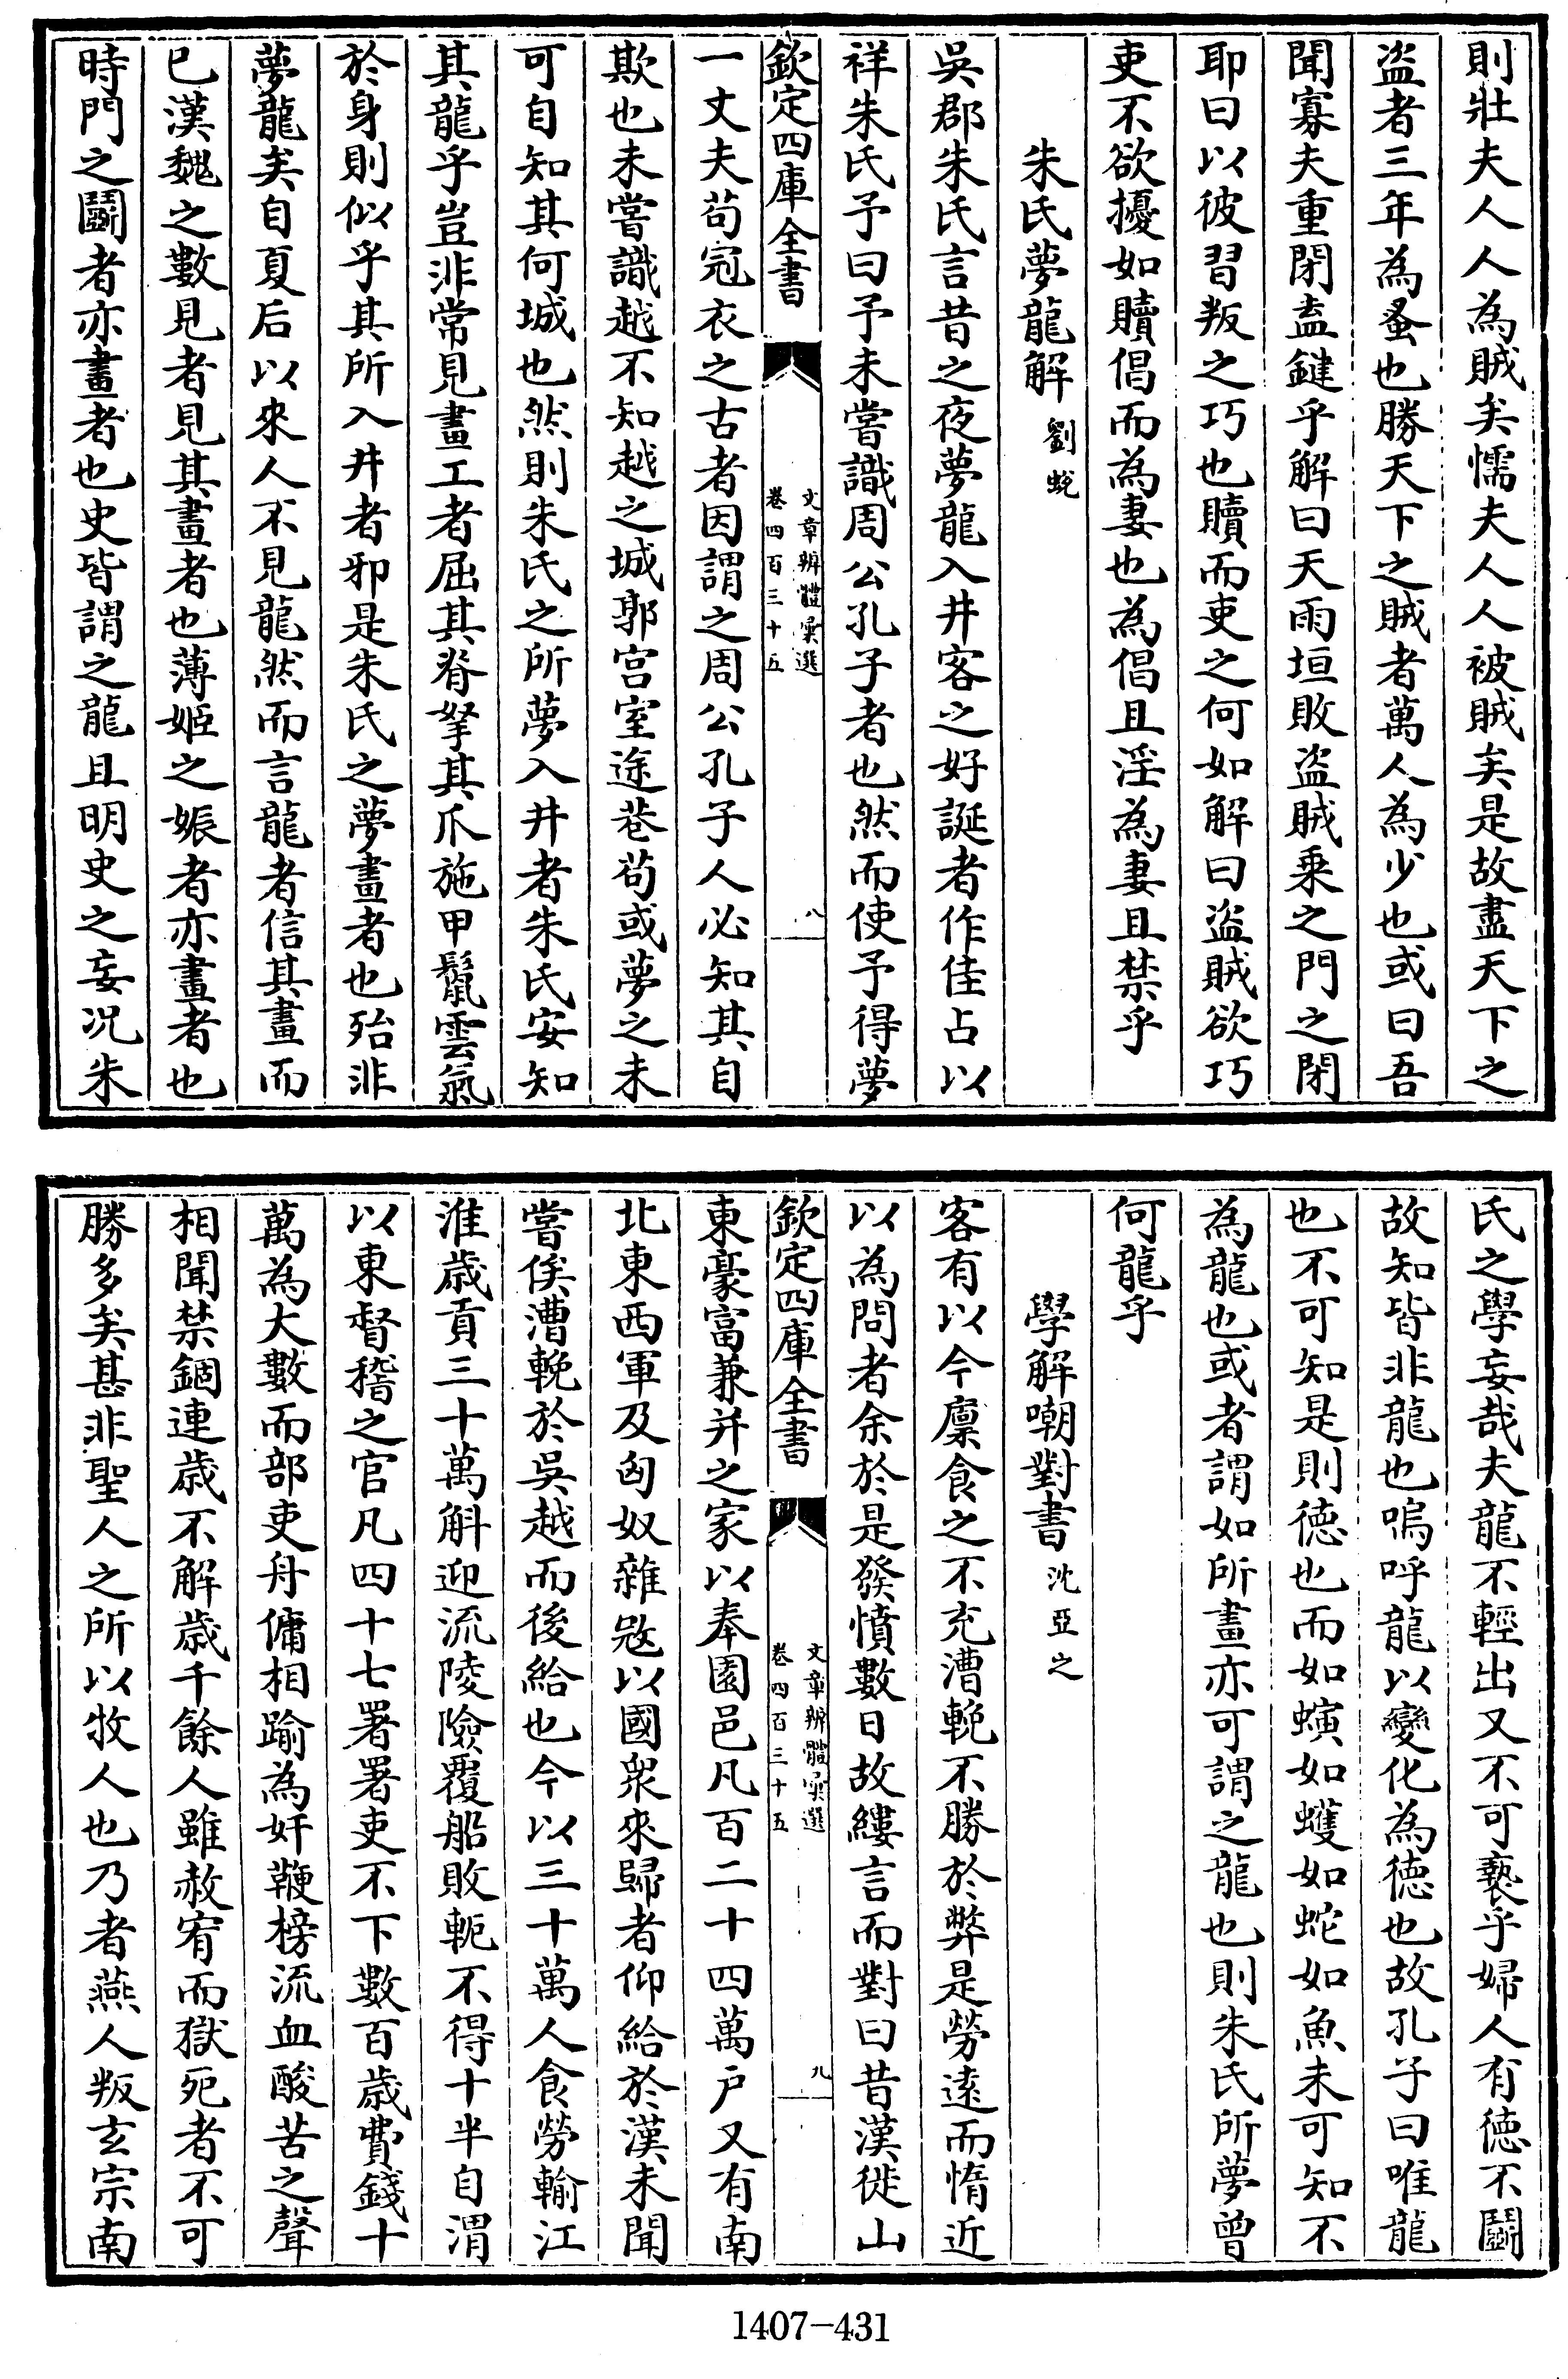 則壯夫人人為賊矣懦夫人人被賊矣是故盡天下之
盜者三年為蚤也勝天下之賊者萬人為少也或曰吾
聞寡夫重閉盍鍵乎解曰天雨垣敗盜賊乘之門之閉
耶曰以彼習叛之巧也贖而吏之何如解曰盜賊欲巧
吏不欲擾如贖倡而為妻也為倡且淫為妻且禁乎
朱氏夢龍解 劉蛻
吳郡朱氏言昔之夜夢龍入井客之好誕者作佳占以
祥朱氏予曰予未嘗識周公孔子者也然而使予得夢
欽定四庫全書
文章辨體彙選
卷四百三十五
八
一丈夫苟冠衣之古者因謂之周公孔子人必知其自
欺也未嘗識越不知越之城郭宫室途巷苟或夢之未
可自知其何城也然則朱氏之所夢入井者朱氏安知
其龍乎豈非常見畫工者屈其脊拏其爪施甲鬣雲氣
於身則似乎其所入井者邪是朱氏之夢畫者也殆非
夢龍矣自夏后以來人不見龍然而言龍者信其畫而
已漢魏之數見者見其畫者也薄姬之娠者亦畫者也
時門之鬭者亦畫者也史皆謂之龍且明史之妄况朱
氏之學妄哉夫龍不輕出又不可褻乎婦人有德不鬭
故知皆非龍也嗚呼龍以變化為德也故孔子曰唯龍
也不可知是則德也而如螾如蠖如蛇如魚未可知不
為龍也或者謂如所畫亦可謂之龍也則朱氏所夢曾
何龍乎
學解嘲對書 沈亞之
客有以今廩食之不充漕輓不勝於弊是勞逺而惰近
以為問者余於是發憤數日故縷言而對曰昔漢徙山
欽定四庫全書
文章辨體彙選
卷四百三十五
九
東豪富兼并之家以奉園邑凡百二十四萬户又有南
北東西軍及匈奴雜虺以國衆來歸者仰給於漢未聞
嘗俟漕輓於吳越而後給也今以三十萬人食勞輸江
淮歲貢三十萬斛迎流陵險覆船敗軛不得十半自渭
以東督稽之官凡四十七署署吏不下數百歲費錢十
萬為大數而部吏舟傭相踰為奸鞭榜流血酸苦之聲
相聞禁錮連歲不解歲千餘人雖赦宥而獄死者不可
勝多矣甚非聖人之所以牧人也乃者燕人叛玄宗南
1407-431